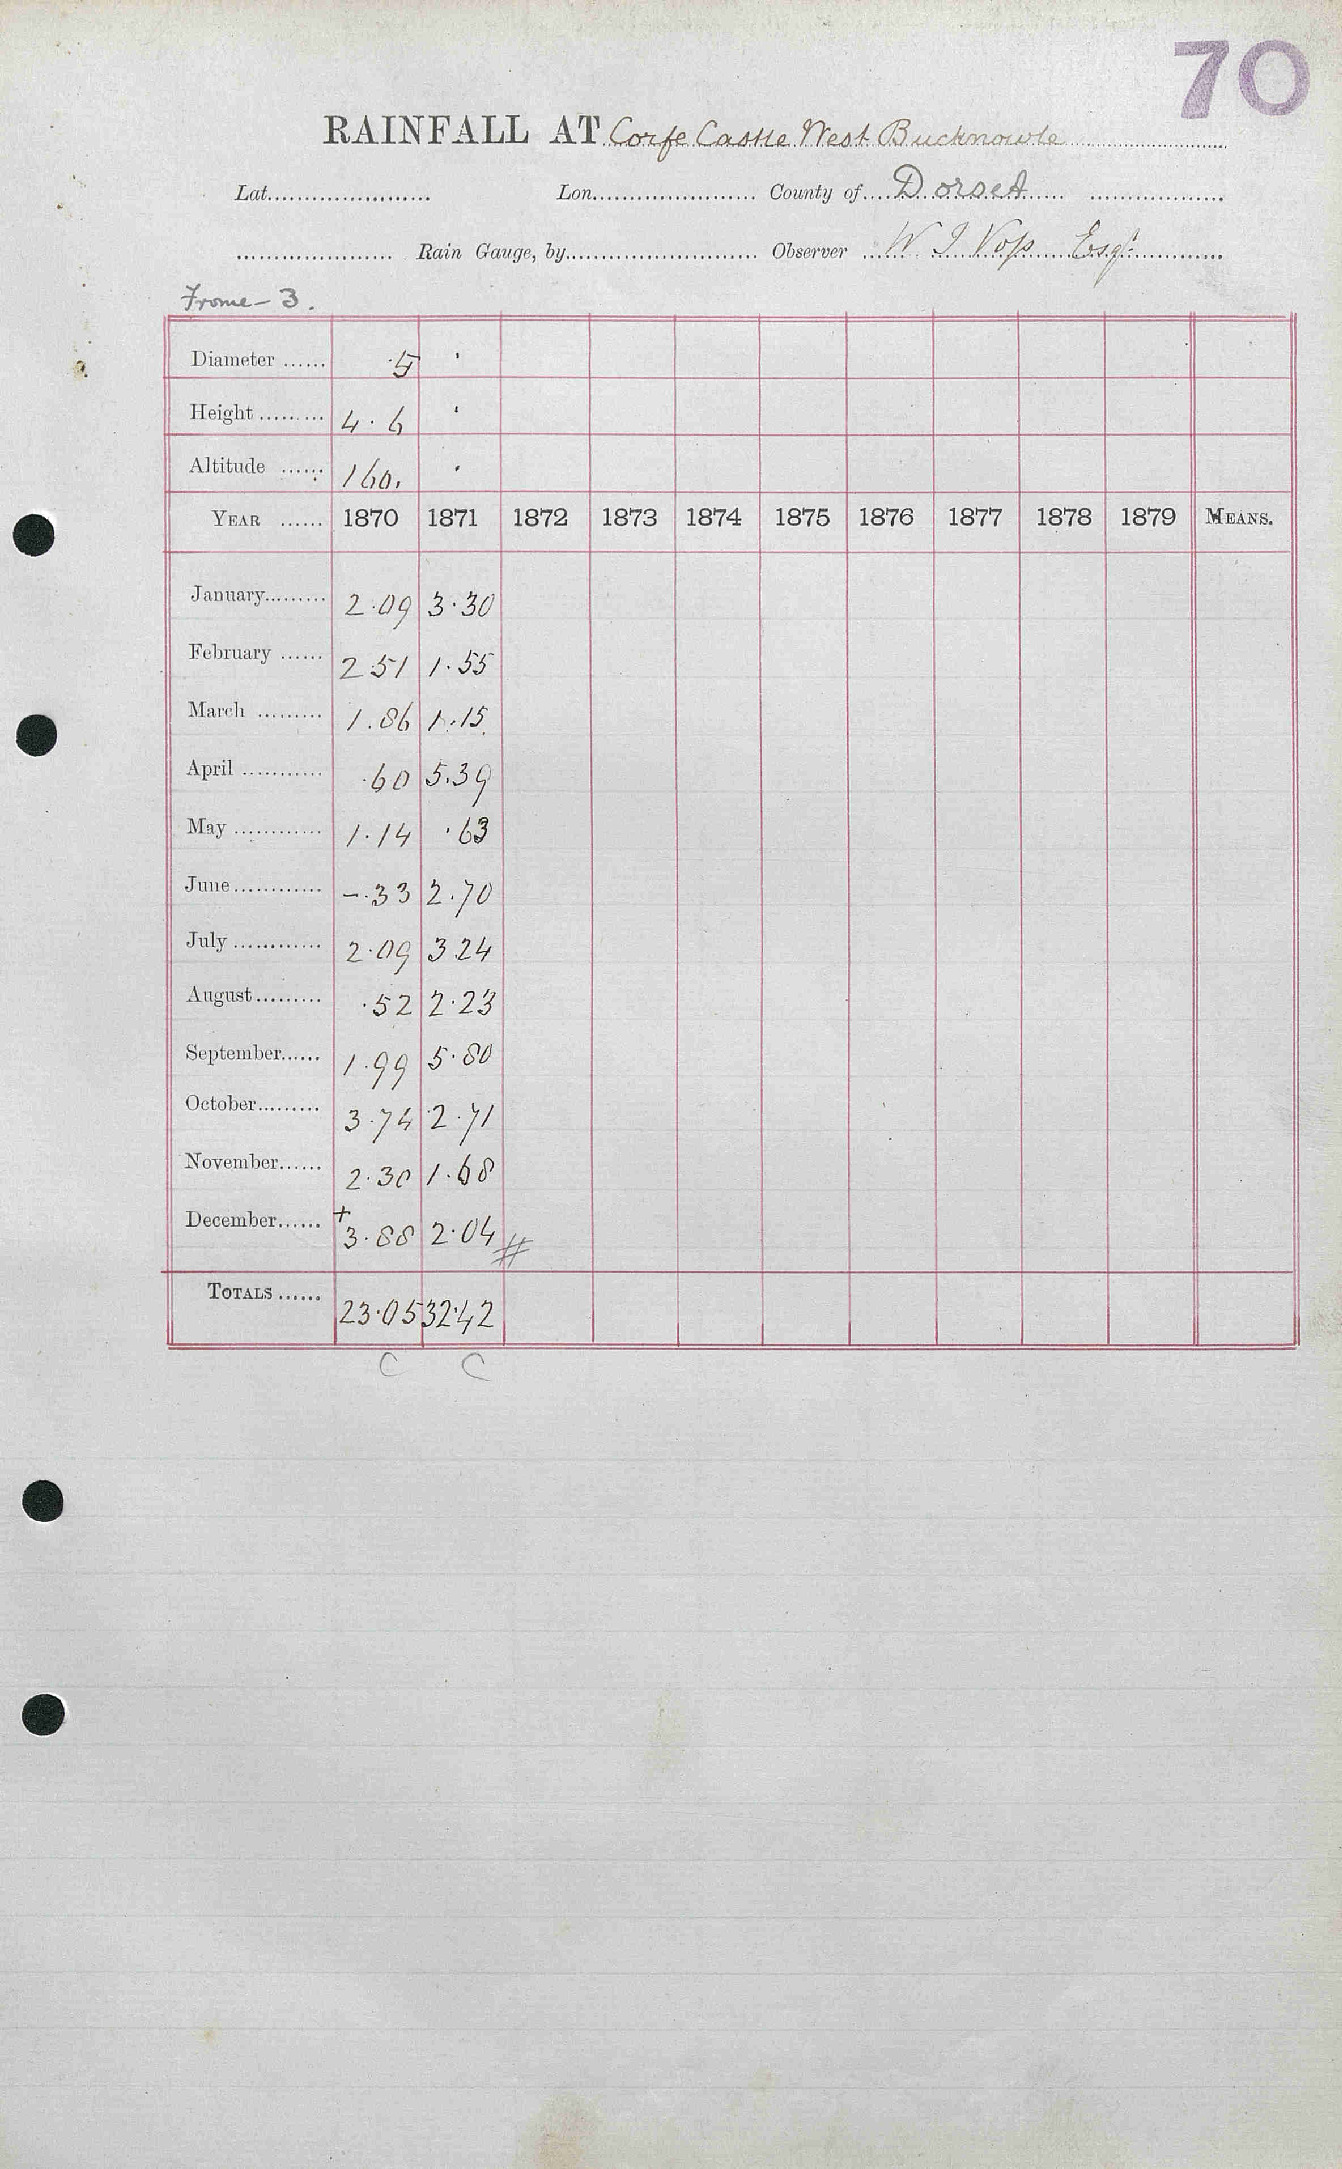 70
RAINFALL AT Corfe Castle West Bucknowle
Lat. Lon. County of Dorset
Rain Gauge, by Observer W J Voss Esqr
Frome - 3.
Diameter ...... 5 '
Height ......... 4.6 '
Altitude ...... 160. '
YEAR ...... 1870 1871 1872 1873 1874 1875 1876 1877 1878 1879 MEANS.
January......... 2.09 3.30
February ...... 2 51 1.55
March ......... 1.86 1.15
April ........... .60 5.39
May ............ 1.14 .63
June ............ -.33 2.70
July ............ 2.09 3 24
August ......... .52 2.23
September...... 1.99 5.80
October......... 3.74 2.71
November...... 2.30 1.68
December...... + 3.88 2.04 #
TOTALS ...... 23.05 32.42
C C